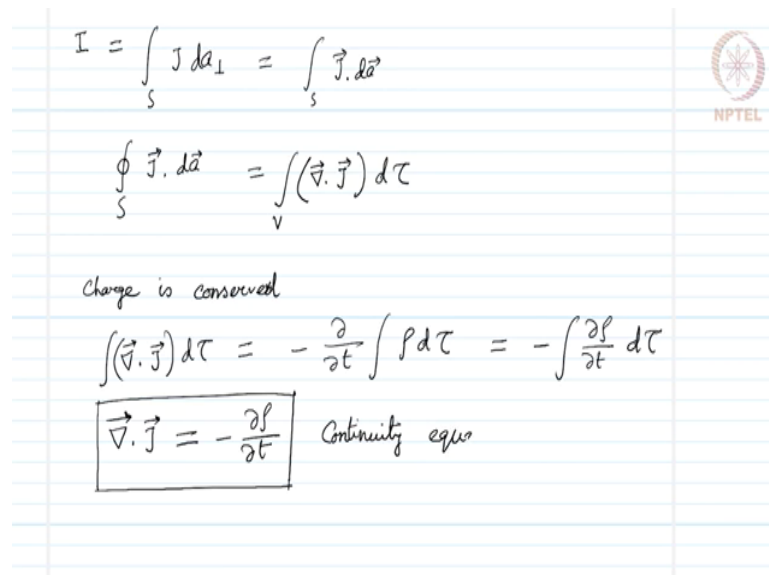 I = ∫_S J da_⊥ = ∫_S J⃗ . da⃗
NPTEL
∮_S J⃗ . da⃗ = ∫_V (∇⃗ . J⃗) dτ
Charge is conserved
∫(∇⃗ . J⃗) dτ = - ∂/∂t ∫ ρ dτ = - ∫ ∂ρ/∂t dτ
∇⃗ . J⃗ = - ∂ρ/∂t Continuity equa